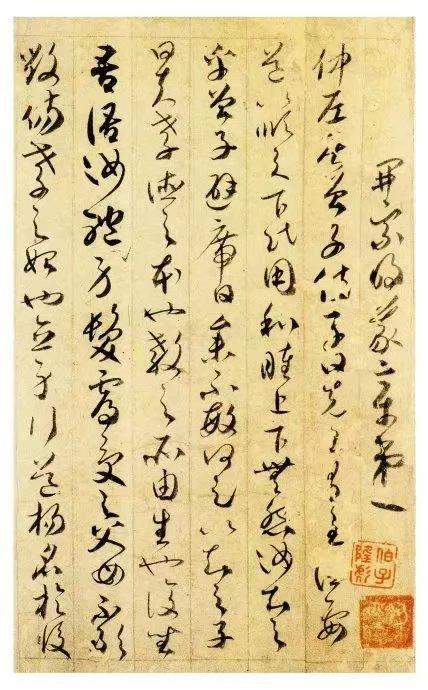 開宗明義章第一
仲尼曾子侍子曰先王有至德要
道以順天下民用和睦上下無怨汝知之
乎曾子避席曰參不敏何足以知之子
曰夫孝德之本也教之所由生也復坐
吾語汝體身髮膚受之父母不敢
毀傷孝之始也立身行道揚名於後